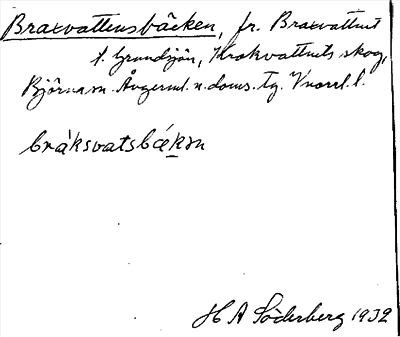 Braxvattensbäcken, fr. Braxvattnet
t. Grundsjön, Krokvattnets skog,
Björna sn. Ångerml. n. doms. tg. Vnorrl. l.
bráksvatsbækən
H A Söderberg 1932